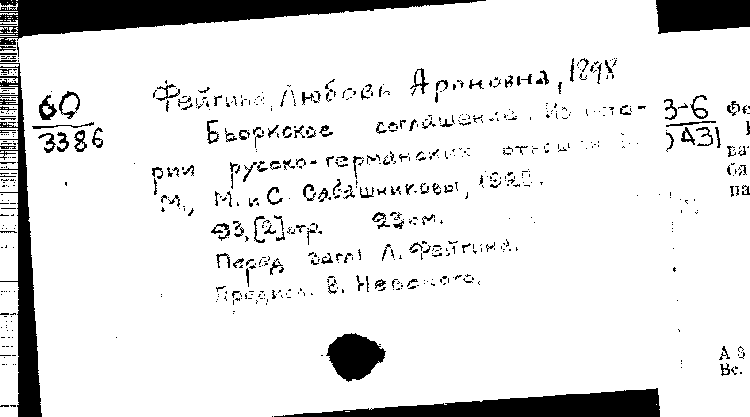 60
3386
Фейгина, Любовь Ароновна, 1898
Бьоркское соглашение. Из исто-
рии русско-германских отношений.
М., М. и С. Сабашниковы, 1928.
93,[2]стр. 23 см.
Перед загл: Л. Фейгина.
Предисл. В. Невского.
3-6
5431
Фе
ва
ба
па
А 8
Вс.